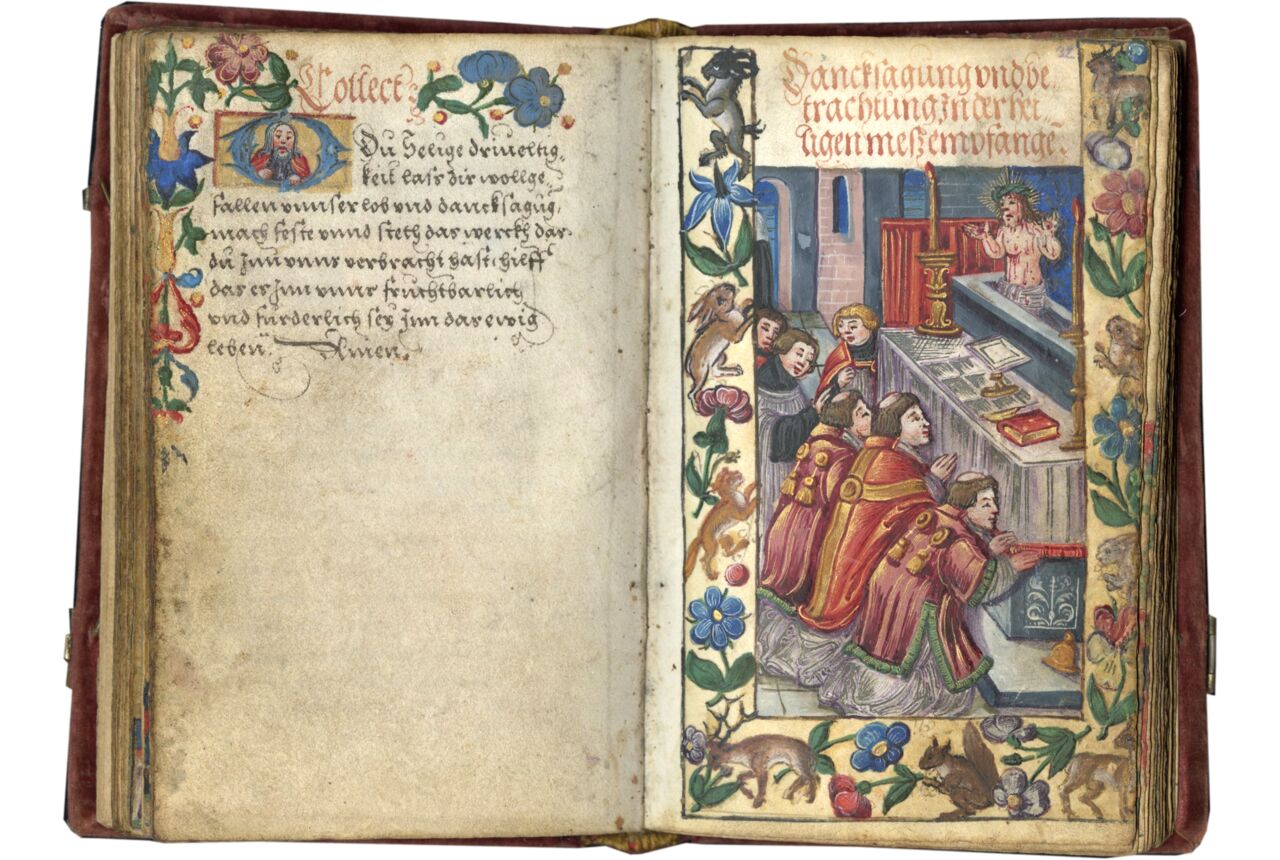 Collect:
Du Heilige driueltig-
keit lass dir wollge-
fallen vnnser lob vnd dancksagūg,
mach feste vnnd steth das werckh das
du Inn vnns verbracht hast, hilff
das es Inn vnns fruchtbarlich
vnd fürderlich sey Inn das ewig
leben. Amen.
Dancksagung vnd be
trachtung In der hei-
ligen mess empfange.